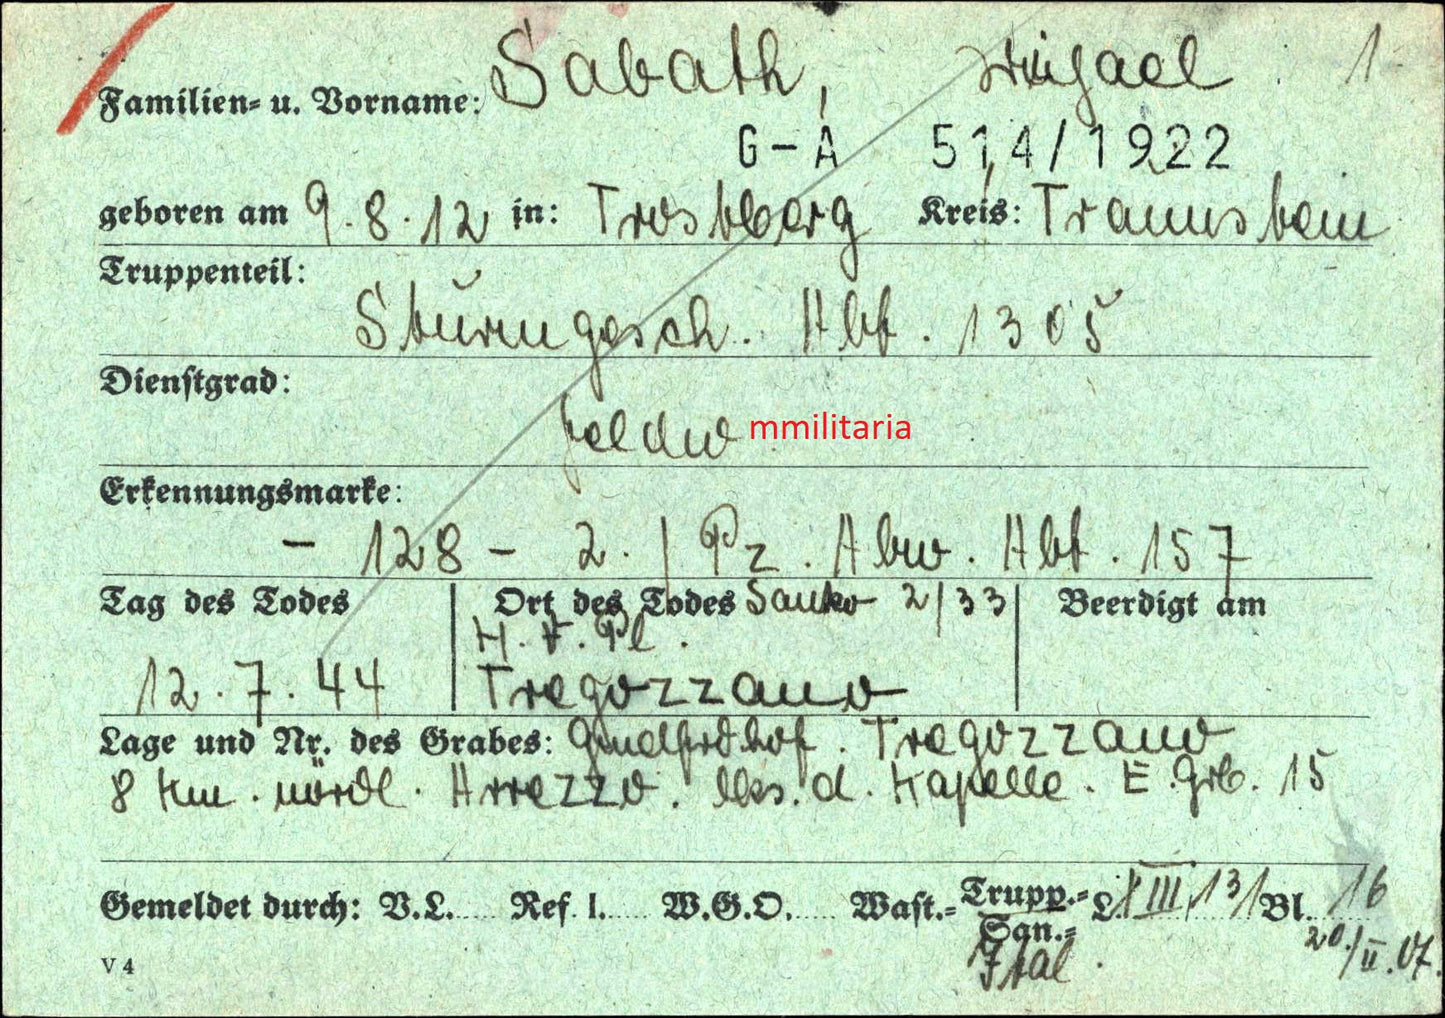 Familien- u. Vorname: Sabath, 1
G-A 514/1922
geboren am 9.8.12 in: Trostberg Kreis: Traunstein
Truppenteil:
Sturmgesch. Abt. 1305
Dienstgrad:
Feldw
mmilitaria
Erkennungsmarke:
- 128 - 2. / Pz. Abw. Abt. 157
Tag des Todes Ort des Todes Sanko 2/33 Beerdigt am
H.V.Pl.
12.7.44 Tregozzano
Lage und Nr. des Grabes: Tregozzano
8 km. nördl. Arrezzo. lks. d. Kapelle. E.Grb. 15
Gemeldet durch: V.L. Ref. I. W.G.O. Wast.- Trupp.- L. XIII 131 Bl. 16
San.-
Ital.
V 4